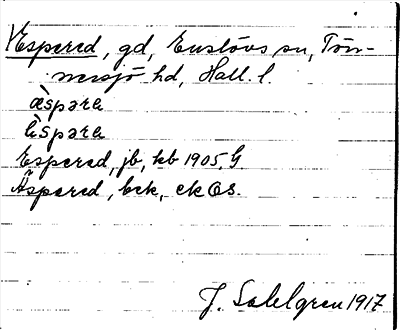 Espered, gd, Enslövs sn, Tön-
nersjö hd, Hall. l.
æ̀spəra
ǟspəra
Espered, jb, kb 1905, G.
Äspered, bek, ek Os.
J. Sahlgren 1917